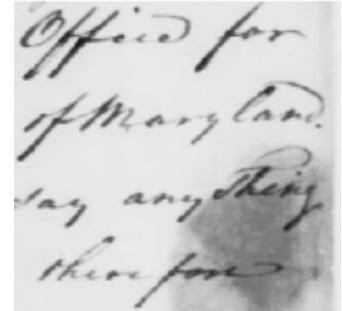 Office for
of Maryland.
say anything
therefore